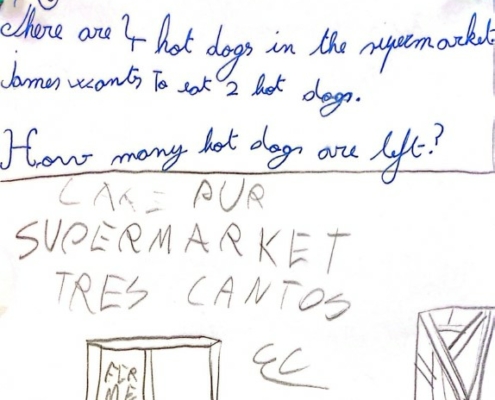 There are 4 hot dogs in the supermarket
James wants to eat 2 hot dogs.
How many hot dogs are left?
SUPERMARKET
TRES CANTOS
FER
ME